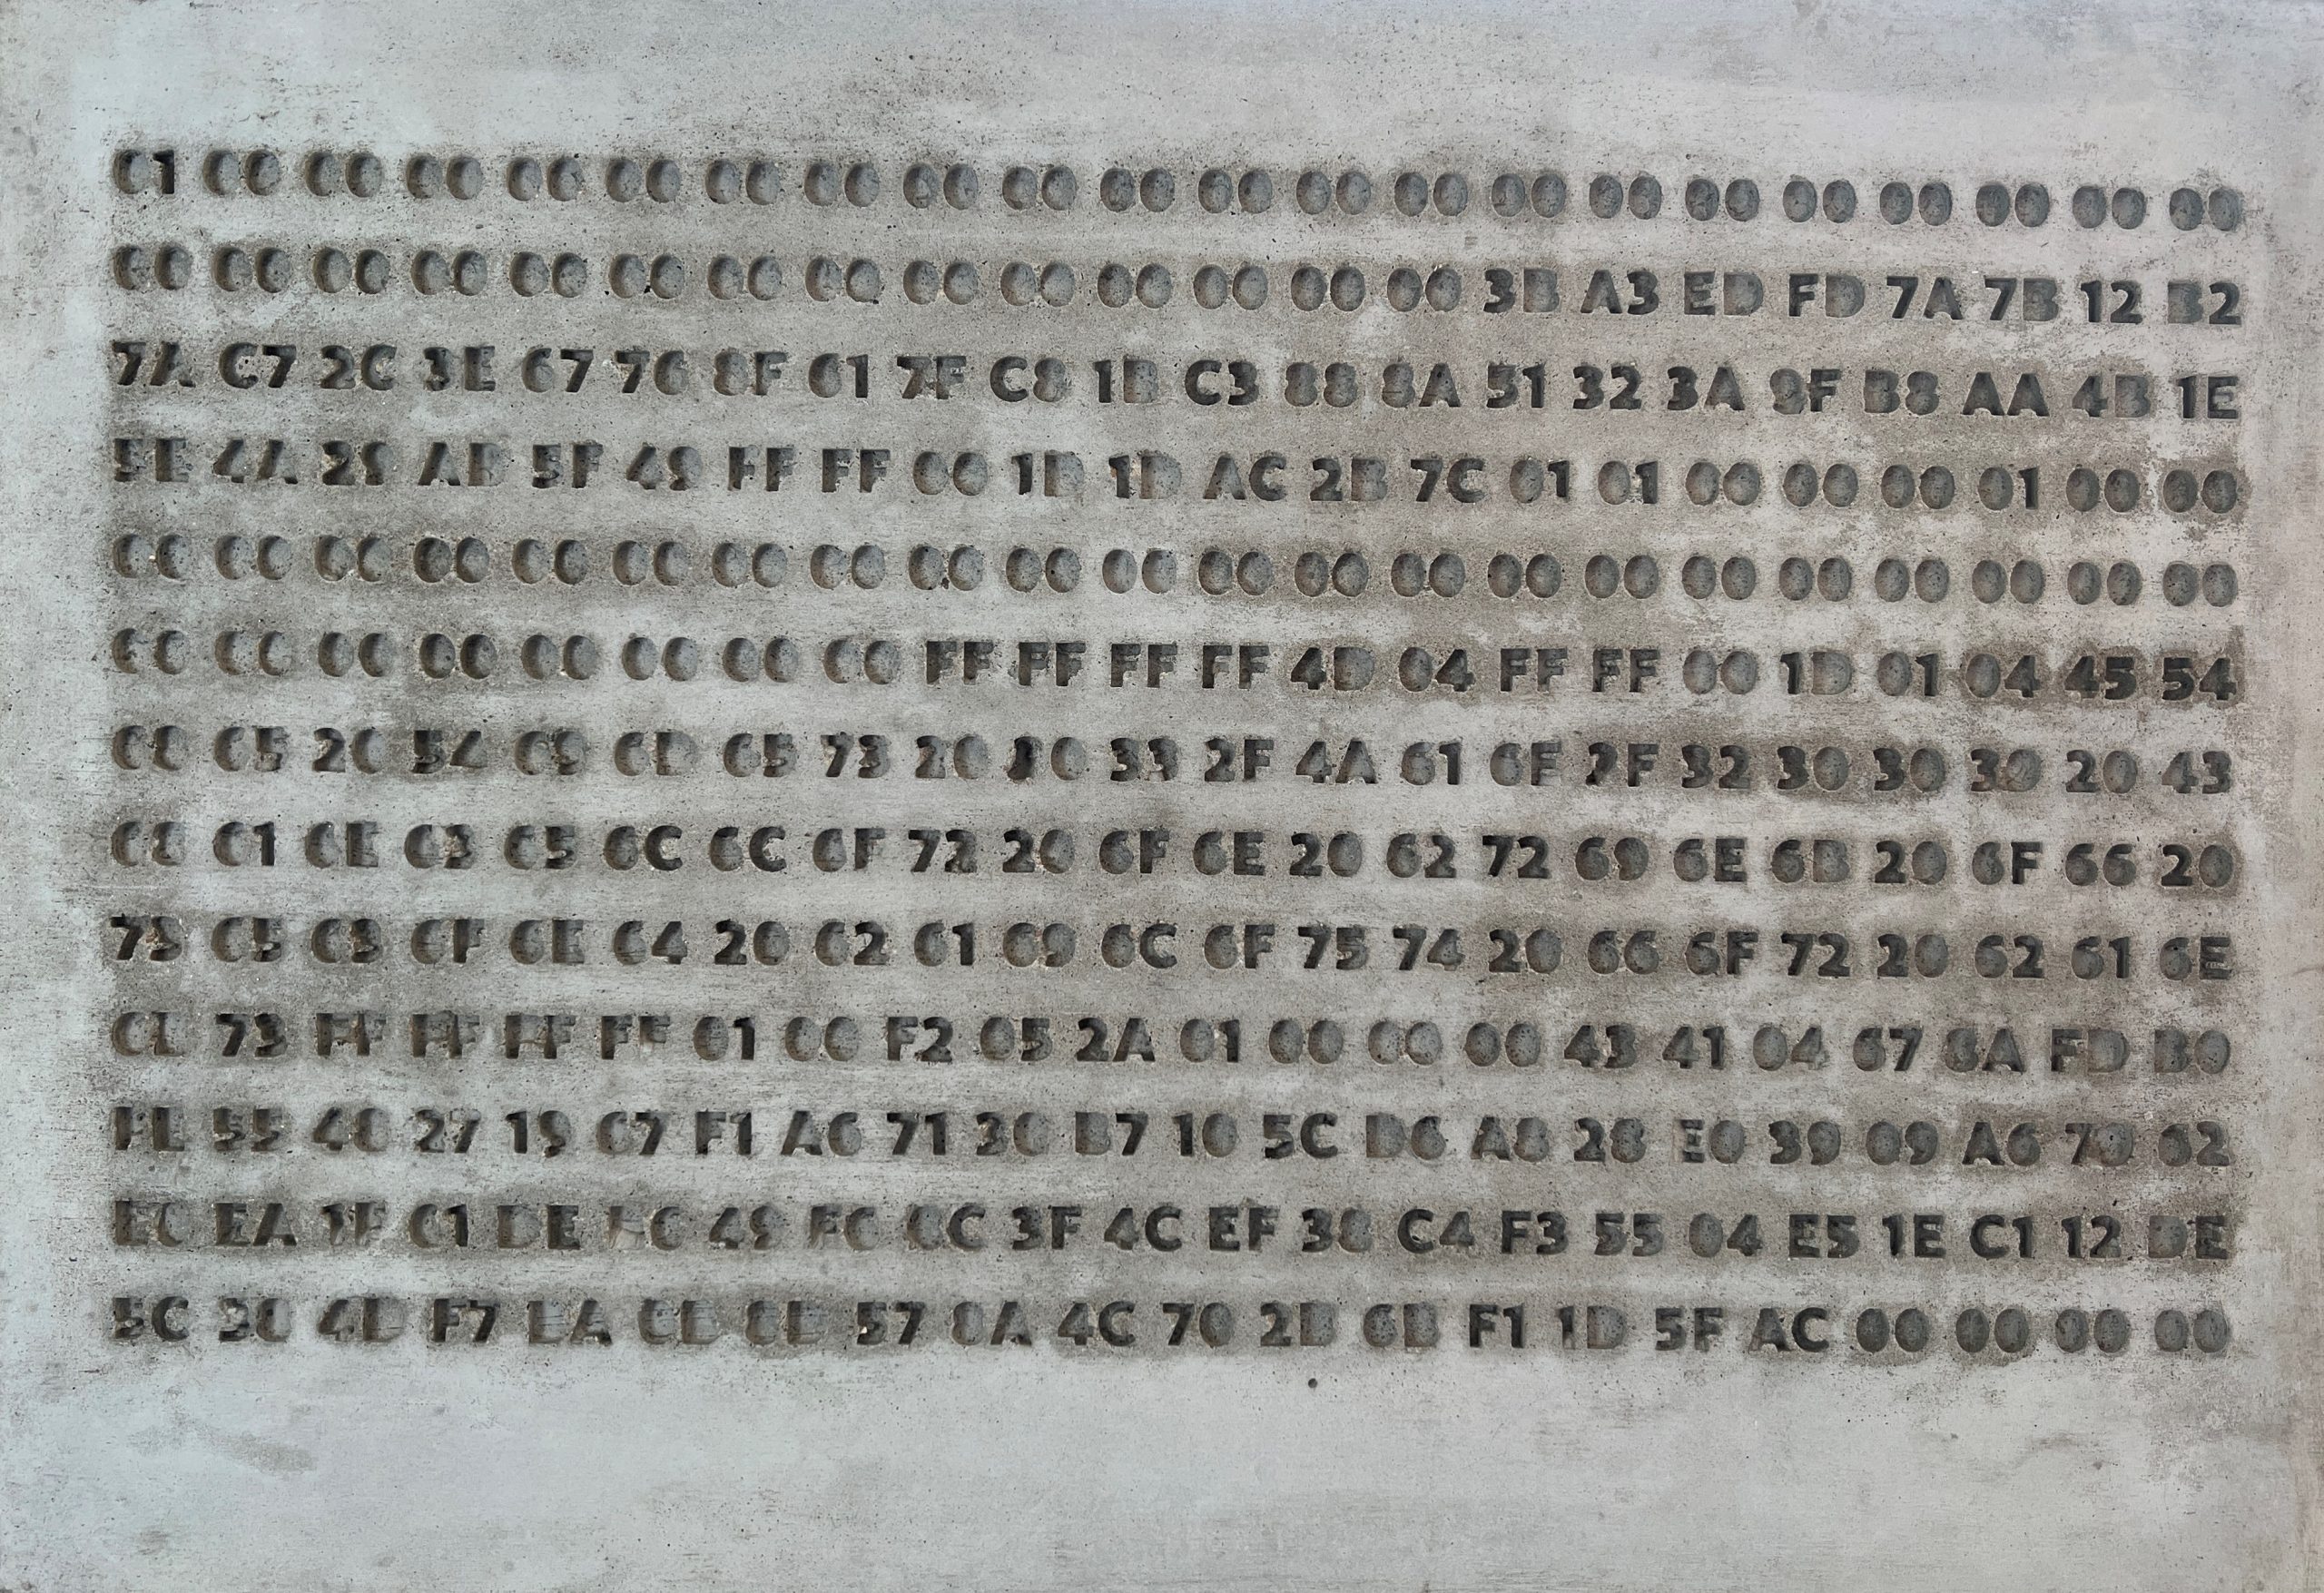 01 00 00 00 00 00 00 00 00 00 00 00 00 00 00 00 00 00 00 00 00 00
00 00 00 00 00 00 00 00 00 00 00 00 00 00 3B A3 ED FD 7A 7B 12 B2
7A C7 2C 3E 67 76 8F 61 7F C8 1B C3 88 8A 51 32 3A 9F B8 AA 4B 1E
5E 4A 29 AB 5F 49 FF FF 00 1D 1D AC 2B 7C 01 01 00 00 00 01 00 00
00 00 00 00 00 00 00 00 00 00 00 00 00 00 00 00 00 00 00 00 00 00
00 00 00 00 00 00 00 00 FF FF FF FF 4D 04 FF FF 00 1D 01 04 45 54
68 65 20 54 69 6D 65 73 20 30 33 2F 4A 61 6E 2F 32 30 30 39 20 43
68 61 6E 63 65 6C 6C 6F 72 20 6F 6E 20 62 72 69 6E 6B 20 6F 66 20
73 65 63 6F 6E 64 20 62 61 69 6C 6F 75 74 20 66 6F 72 20 62 61 6E
6B 73 FF FF FF FF 01 00 F2 05 2A 01 00 00 00 43 41 04 67 8A FD B0
FE 55 48 27 19 67 F1 A6 71 30 B7 10 5C D6 A8 28 E0 39 09 A6 79 62
E0 EA 1F 61 DE B6 49 F6 BC 3F 4C EF 38 C4 F3 55 04 E5 1E C1 12 DE
5C 38 4D F7 BA 0B 8D 57 8A 4C 70 2B 6B F1 1D 5F AC 00 00 00 00